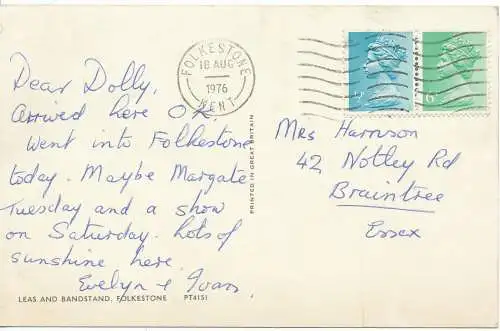 FOLKESTONE
18 AUG
1976
KENT
½P
6P
Dear Dolly,
Arrived here O.K.
Went into Folkestone
today. Maybe Margate
Tuesday and a show
on Saturday. Lots of
sunshine here.
Evelyn & Ivan.
LEAS AND BANDSTAND, FOLKESTONE PT4151
PRINTED IN GREAT BRITAIN
Mrs Harrison
42 Notley Rd
Braintree
Essex